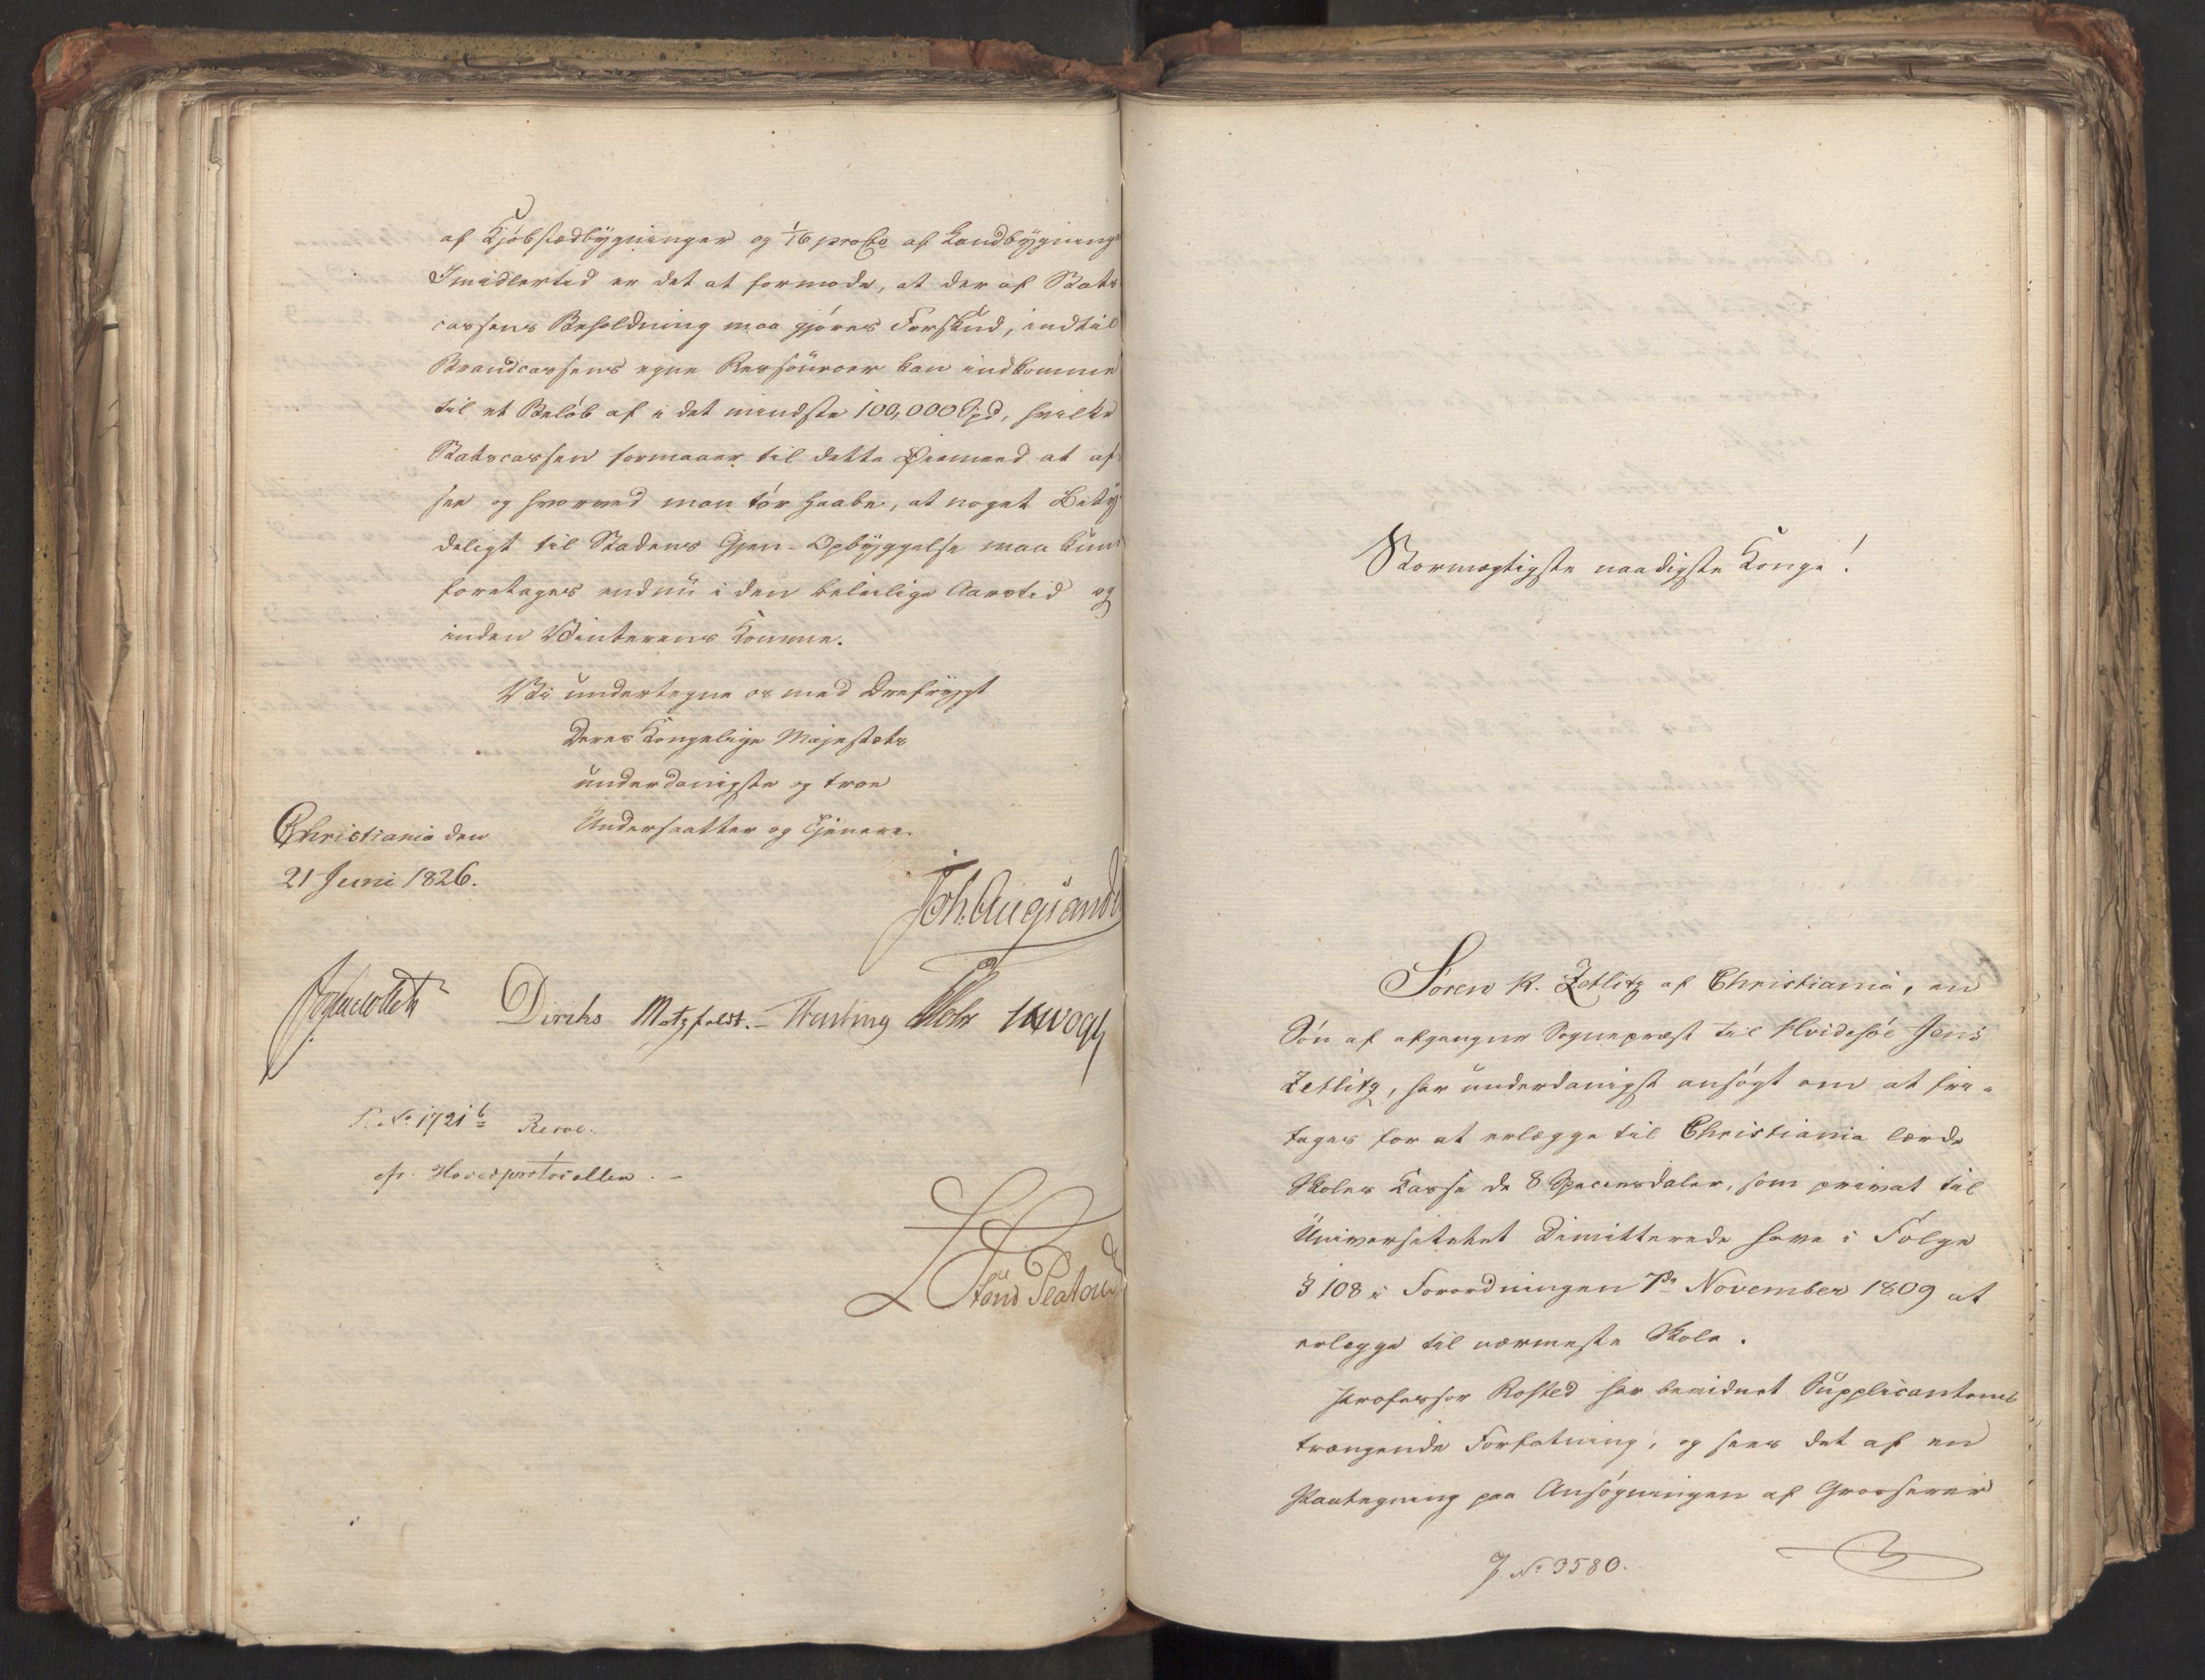 af Kjöbstædbygninger og 1/16 proCto af Landbygning
Imidlertid er det at formode, at der af Stats
cassens Beholdning maa gjöres Forskud, indtil
Brandcassens egne Ressourcer kan indkomme
til et Belöb af i det mindste 100,000 Spd, hvilke
Statscassen formaaer til dette Øiemeed at af-
see og hvorved man tör haabe, at noget Bety
deligt til Stadens Gjen-Opbyggelse maa kun
foretages endnu i den beleilige Aarstid og
inden Vinterens Komme.
Vi undertegne os med Ærefrygt
Deres Kongelige Majestæts
underdanigste og troe
Undersaatter og Tjenere.
Christiania den
21 Juni 1826.
Joh. Aug. Sande
Diriks Motzfeldt. Fasting Vogt
No 1721 b
cfr. Hovedprotocollen. -
Stormægtigste naadigste Konge!
Sören R. Zetlitz af Christiania, en
Sön af afgangne Sognepræst til Hvidesöe Jens
Zetlitz, har underdanigst ansögt om at fri-
tages for at erlægge til Christiania lærde
Skoles Casse de 8 Speciesdaler, som privat til
Universitetet Dimitterede have i Fölge
§ 108 i Forordningen 7de November 1809 at
erlægge til nærmeste Skole.
Professor Rosted har bevidnet Supplicantens
trængende Forfatning, og sees det af en
Paategning paa Ansögningen af Grosserer
J. No 3580.